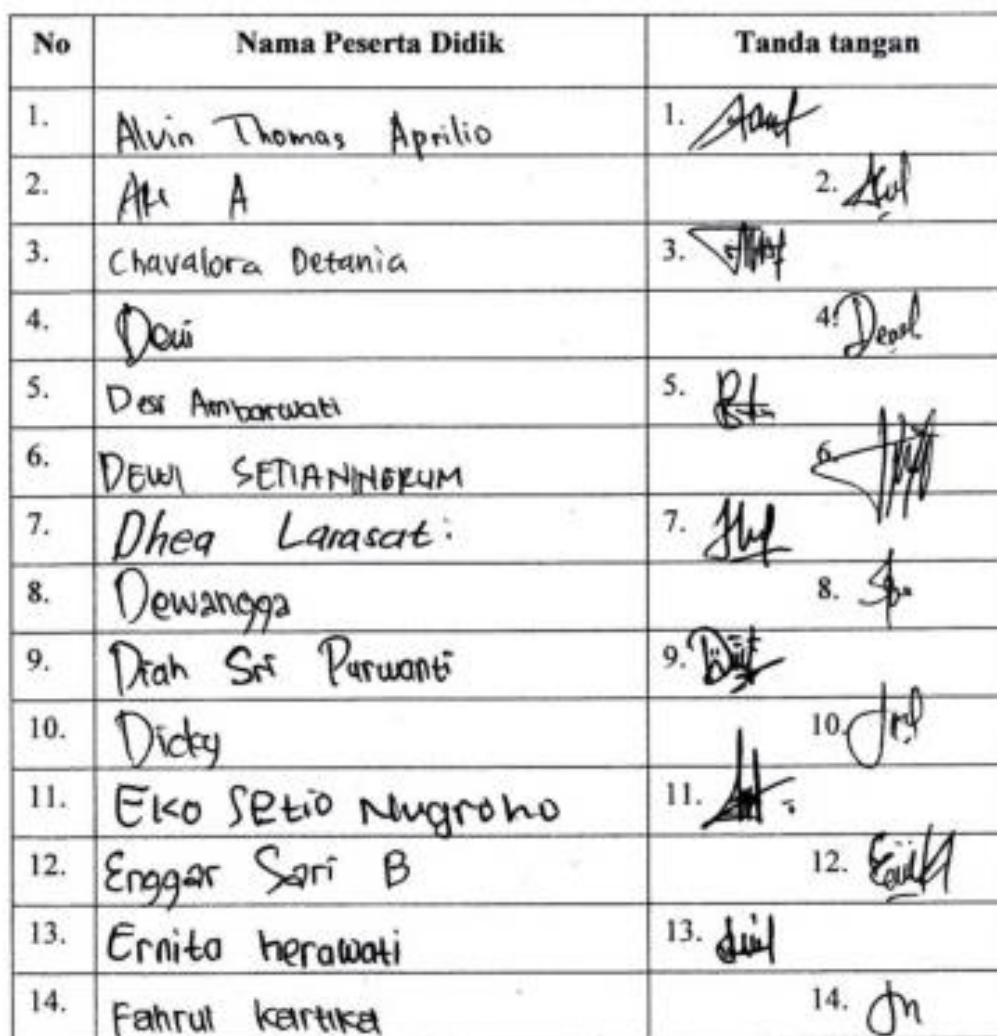 No Nama Peserta Didik Tanda tangan
1. Alvin Thomas Aprilio 1.
2. A 2.
3. Chavalora Detania 3.
4. Dewi 4.
5. Desi Ambarwati 5.
6. DEWI SETIANINGRUM 6.
7. Dhea Larasati 7.
8. Dewangga 8.
9. Diah Sri Purwanti 9.
10. Dicky 10.
11. Eko Setio Nugroho 11.
12. Enggar Sari B 12.
13. Ernita herawati 13.
14. Fahrul kartika 14.